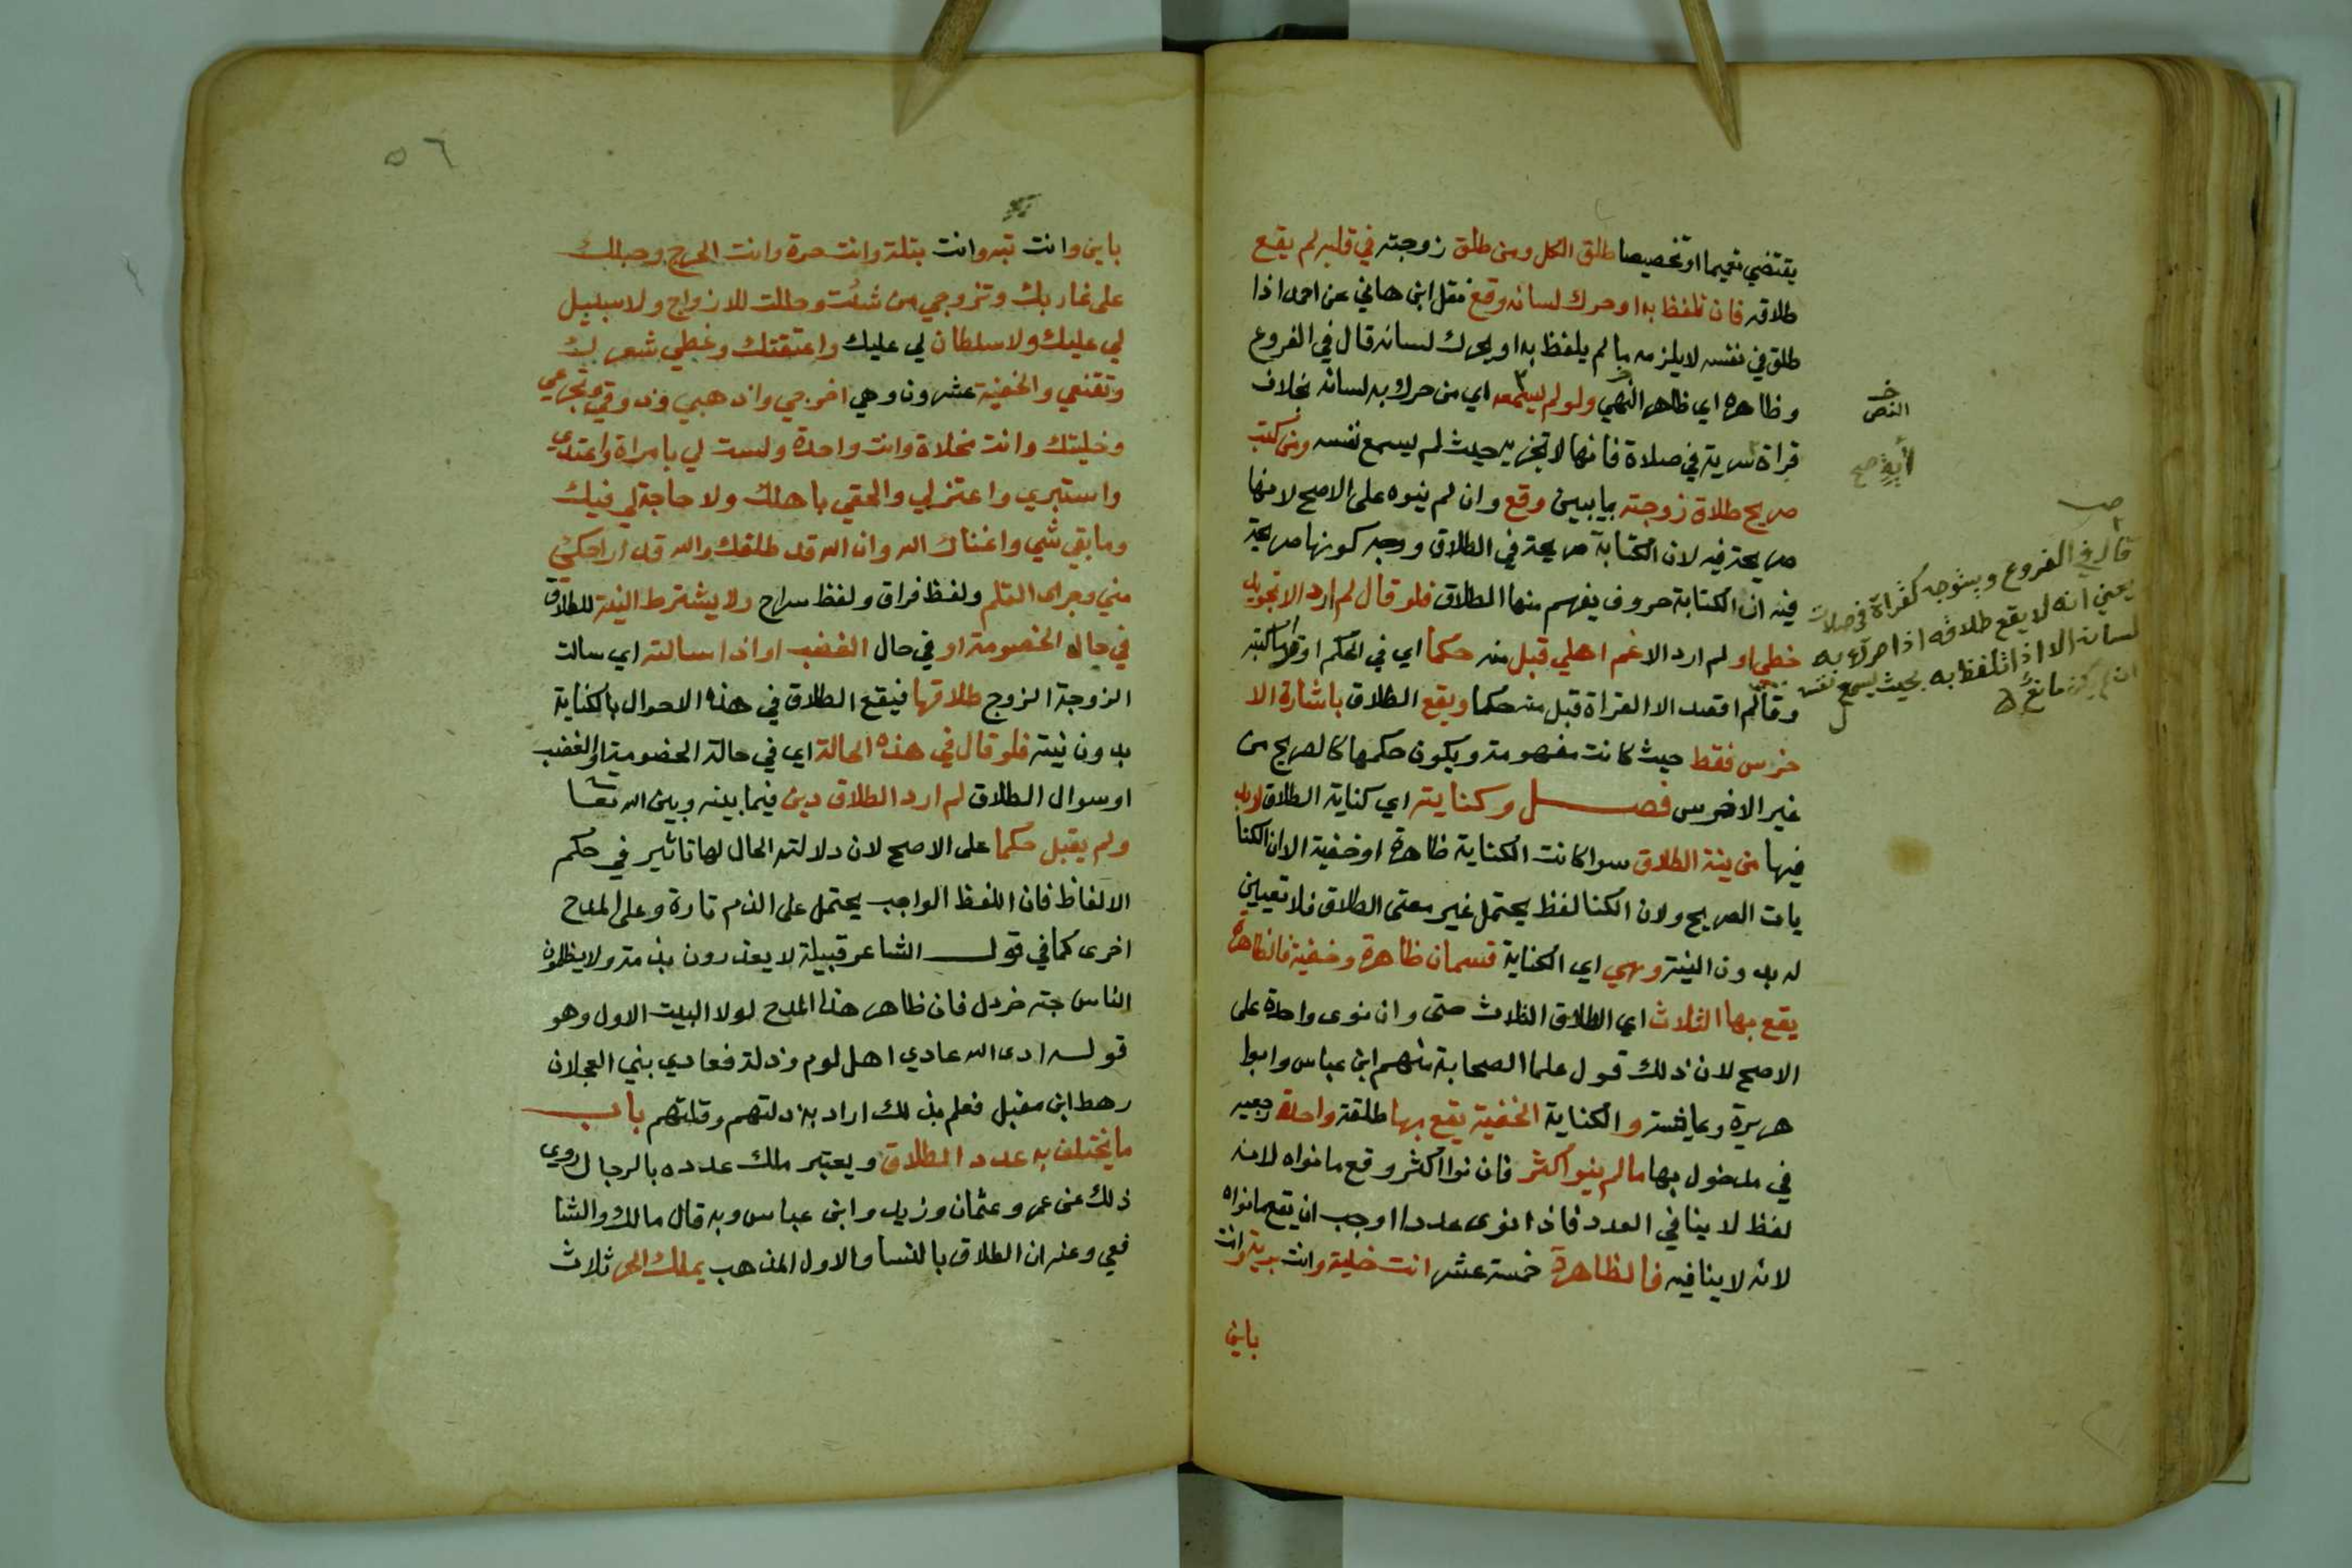 يقتضي تعميما او تخصيصا طلق الكل ومن طلق زوجته في قلبه لم يقع
طلاقه فان تلفظ به او حرك لسانه وقع نقل ابن هاني عن احمد اذا
طلق في نفسه لا يلزمه ما لم يلفظ به او يحرك لسانه قال في الفروع
وظاهره اي ظاهر النهي ولو لم يسمعه اي من حرك به لسانه بخلاف
قراة سرية في صلاة فانها لا تجزيه حيث لم يسمع نفسه ومن كتب
صريح طلاق زوجته بما يبين وقع وان لم ينوه على الاصح لانها
صريحة فيه لان الكتابة صريحة في الطلاق ووجه كونها صريحة
فيه ان الكتابة حروف يفهم منها الطلاق فلو قال لم ارد الا تجويد
خطي او لم ارد الا غم اهلي قبل منه حكما اي في الحكم او قرا ما كتبه
وقال لم اقصد الا القراة قبل منه حكما ويقع الطلاق باشارة الا
خرس فقط حيث كانت مفهومة ويكون حكمها كالصريح من
غير الاخرس فصل وكنايته اي كناية الطلاق لا بد
فيها من نية الطلاق سوا كانت الكناية ظاهرة او خفية الا ان الكنا
يات الصريح ولان الكنا لفظ يحتمل غير معنى الطلاق فلا تعيين
له بدون النية وهي اي الكناية قسمان ظاهرة وخفية فالظاهرة
يقع بها الثلاث اي الطلاق الثلاث حتى وان نوى واحدة على
الاصح لان ذلك قول علما الصحابة منهم ابن عباس وابوا
هريرة وعايشة والكناية الخفية يقع بها طلقة واحدة رجعيه
في مدخول بها ما لم ينو اكثر فان نوا اكثر وقع ما نواه لانه
لفظ لا ينافي العدد فاذا نوى عددا اوجب ان يقع ما نواه
لانه لا ينافيه فالظاهرة خمسة عشر انت خلية وانت برية وانت
باين
خ
النص
صح
قال في الفروع ويتوجه كقراة في صلاة
يعني انه لا يقع طلاقه اذا حرك به
لسانه الا اذا تلفظ به بحيث يسمع نفسه
ان لم يكن مانع
٥٦
باين وانت بته وانت بتلة وانت حرة وانت الحرج وحبلك
على غاربك وتزوجي من شئت وحللت للازواج ولا سبيل
لي عليك ولا سلطان لي عليك واعتقتك وغطي شعرك
وتقنعي والخفية عشرون وهي اخرجي واذهبي وذوقي وتجرعي
وخليتك وانت مخلاة وانت واحدة ولست لي بامراة واعتدي
واستبري واعتزلي والحقي باهلك ولا حاجة لي فيك
وما بقي شي واغناك الله وان الله قد طلقك والله قد اراحك
مني وجرى القلم ولفظ فراق ولفظ سراح ولا يشترط النية للطلاق
في حال الخصومة او في حال الغضب او اذا سالته اي سالت
الزوجة الزوج طلاقها فيقع الطلاق في هذه الاحوال بالكناية
بدون نية فلو قال في هذه الحالة اي في حالة الخصومة او الغضب
او سوال الطلاق لم ارد الطلاق دين فيما بينه وبين الله تعا
ولم يقبل حكما على الاصح لان دلالته الحال لها تاثير في حكم
الالفاظ فان اللفظ الواجب يحتمل على الذم تارة وعلى المدح
اخرى كما في قول الشاعر قبيلة لا يعذرون بذمة ولا يظلمون
الناس حبة خردل فان ظاهر هذا المدح لولا البيت الاول وهو
قوله ادى الله عادي اهل لوم وذلة فعادي بني العجلان
رهط ابن مقبل فعلم بذلك اراد به ذلتهم وقلتهم باب
ما يختلف به عدد الطلاق ويعتبر ملك عدده بالرجال روي
ذلك عن عمر وعثمان وزيد وابن عباس وبه قال مالك والشا
فعي وعنه ان الطلاق بالنسا والاول المذهب يملك الحر ثلاث